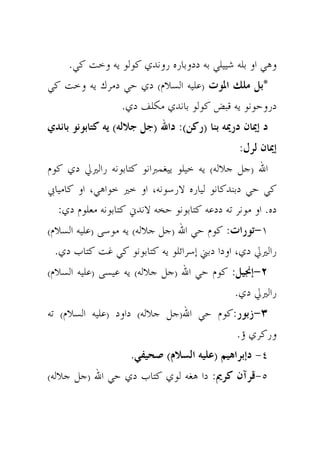 وهي او بله شيپلي به ددوباره روندي كولو يه وخت كي.
*بل ملك الموت (عليه السلام) دي حي دمرك يه وخت كي
دروحونو يه قبض كولو باندي مكلف دي.
د إيمان دريمه بنا (ركن): دالله (جل جلاله) يه كتابونو باندي
إيمان لرل:
الله (جل جلاله) يه خيلو ييغمبرانو كتابونه راليرلي دي كوم
كي حي دبندكانو لياره لارسونه، او خير خواهي، او كاميابي
ده. او مونر ته ددغه كتابونو حخه لاندني كتابونه معلوم دي:
١-تورات: كوم حي الله (جل جلاله) يه موسى (عليه السلام)
راليرلي دي، اودا دبني إسرائلو يه كتابونو كي غت كتاب دي.
٢-إنجيل: كوم حي الله (جل جلاله) يه عيسى (عليه السلام)
راليرلي دي.
٣-زبور:كوم حي الله(جل جلاله) داود (عليه السلام) ته
وركري ؤ.
٤- دإبراهيم (عليه السلام) صحيفي.
٥-قرآن كريم: دا هغه لوي كتاب دي حي الله (جل جلاله)